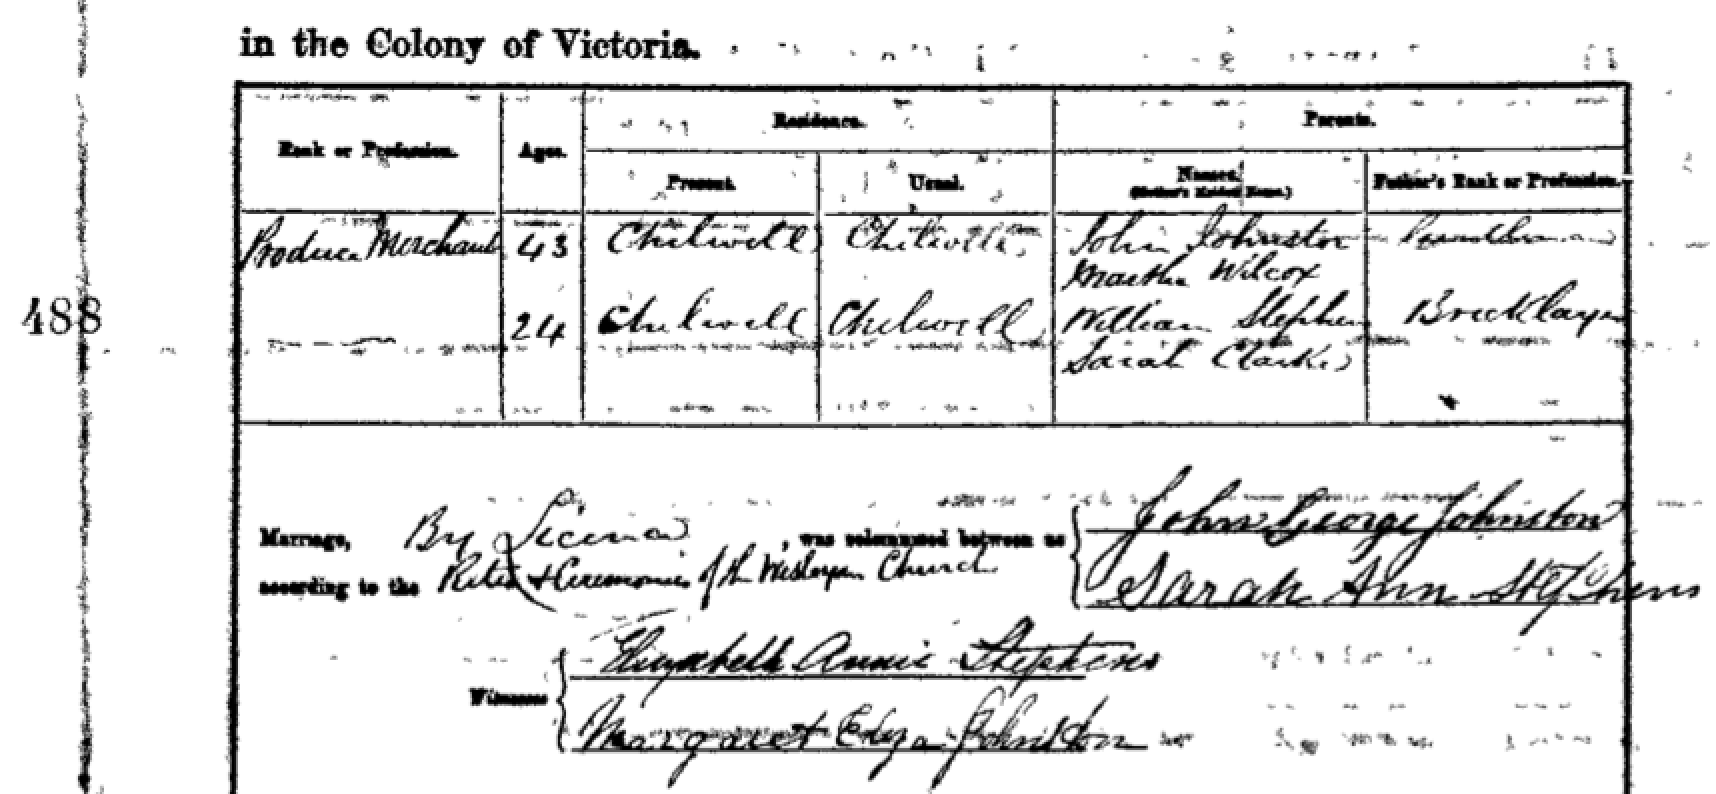 in the Colony of Victoria.
Rank or Profession. Ages. Residence. Parents.
Present. Usual. Names. (Mother's Maiden Name.) Father's Rank or Profession.
Produce Merchant 43 Chilwell Chilwell John Johnston
Martha Wilcox
488 24 Chilwell Chilwell William Stephens Bricklayer
Sarah Clarke
Marriage, By License, was solemnized between us John George Johnston
according to the Rites & Ceremonies of the Wesleyan Church Sarah Ann Stephens
Elizabeth Annie Stephens
Witnesses
Margaret Eliza Johnston